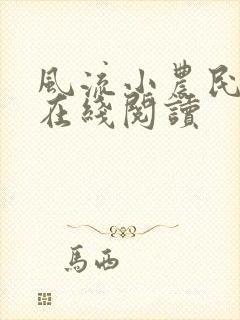 風流小農民
在綫閱讀
馬西